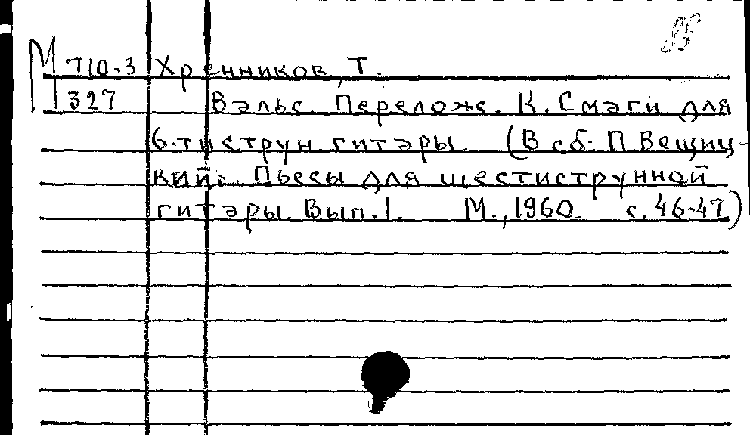 М 710-3 Хренников, Т.
327 Вальс. Перелож. К. Смаги для
6-тиструн. гитары. (В сб: П. Вещиц-
кий. Пьесы для шестиструнной
гитары. Вып. 1. М., 1960. с. 46-47)